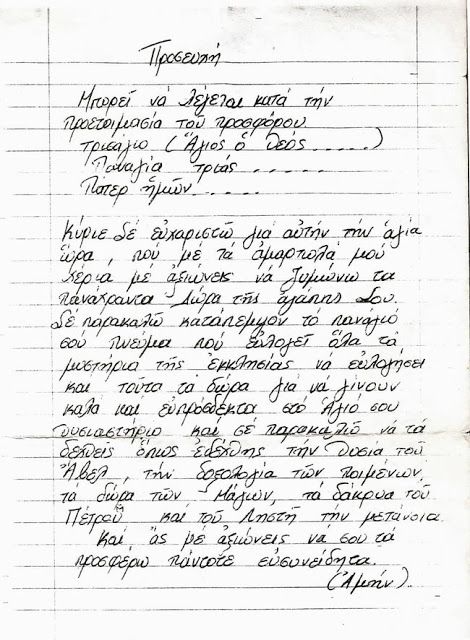 Προσευχή
Μπορεῖ νά λέγεται κατά τήν
προετοιμασία τοῦ προσφόρου
τρισάγιο (Ἅγιος ὁ Θεός.....)
Παναγία τριάς.....
Πάτερ ἡμῶν.....
Κύριε Σέ εὐχαριστῶ γιά αὐτήν τήν ἁγία
ὥρα, πού μέ τά ἁμαρτωλά μού
χέρια μέ ἀξιώνεις νά ζυμώνω τα
πανάχραντα Δώρα τῆς ἀγάπης Σου.
Σέ παρακαλῶ κατάπεμψον τό πανάγιό
σού πνεῦμα πού εὐλογεῖ ὅλα τά
μυστήρια τῆς ἐκκλησίας νά εὐλογήσει
και τοῦτα τα δῶρα γιά νά γίνουν
καλά καί εὐπρόσδεκτα στό Ἅγιό σου
θυσιαστήριο καί σέ παρακαλῶ νά τά
δεχθεῖς ὅπως ἐδέχθης τήν θυσία τοῦ
Ἄβελ, τήν δοξολογία τῶν ποιμένων,
τα δῶρα τῶν Μάγων, τά δάκρυα τοῦ
Πέτρου καί τοῦ Ληστή τήν μετάνοια.
Καί ἄς με ἀξιώνεις νά σου τά
προσφέρω πάντοτε εὐσυνείδητα.
(Ἀμήν).